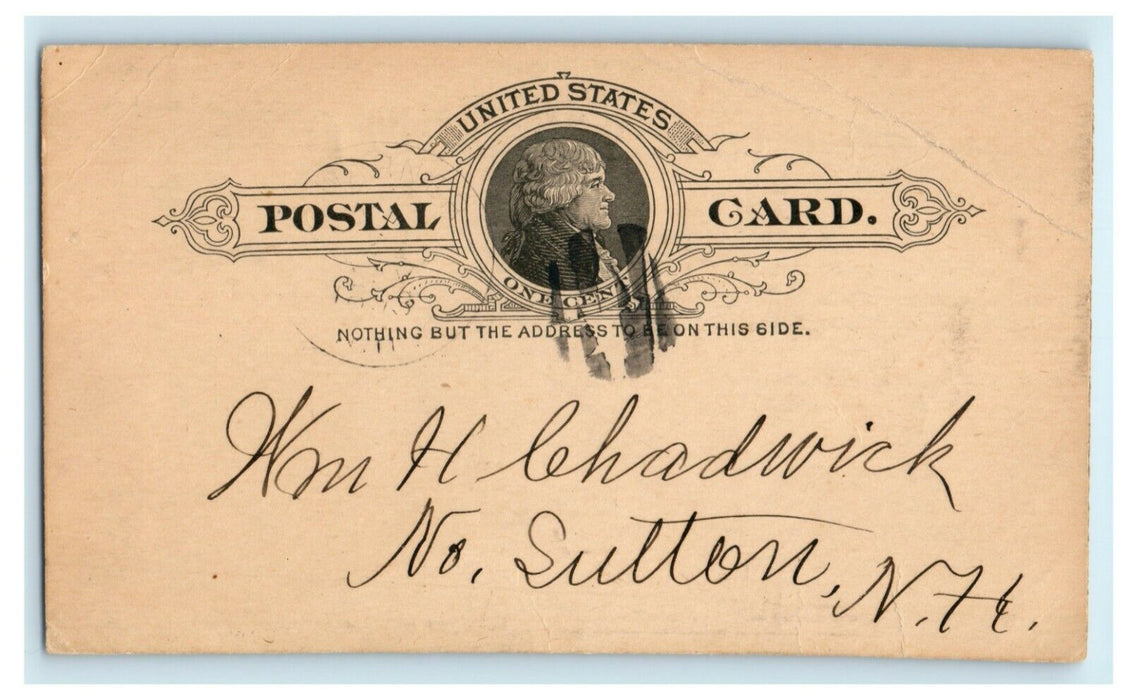 UNITED STATES
POSTAL CARD.
ONE CENT
NOTHING BUT THE ADDRESS TO BE ON THIS SIDE.
Wm H Chadwick
No. Sutton, N.H.